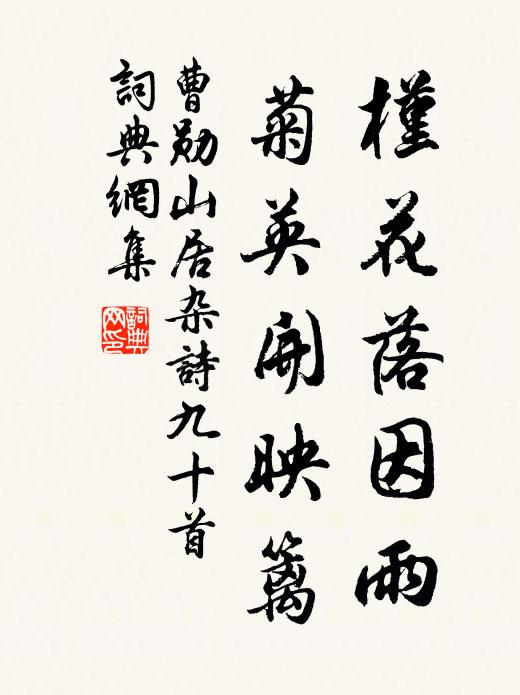 槿花落因雨
菊英開映篱
曹勛山居杂詩九十首
詞典網集
詞典网印